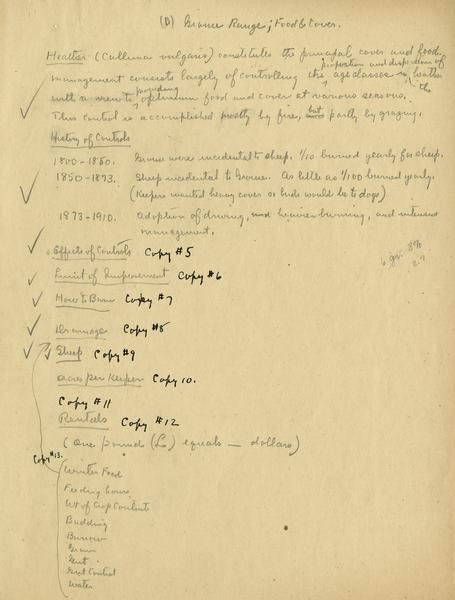 (D) Grouse Range; Food & Cover.
Heather (Culluna vulgaris) constitutes the principal cover and food.
proportion and dispersion of
management consists largely of controlling the age classes heather
providing the
with a view to optimum food and cover at various seasons.
This control is accomplished mostly by fire, but partly by grazing.
History of Controls
1800-1850. Grouse were incidental to sheep. 1/10 burned yearly for sheep.
1850-1873. Sheep incidental to Grouse. As little as 1/100 burned yearly.
(Keepers wanted heavy cover so birds would lie to dogs)
1873-1910. Adoption of driving, heavier burning, and intensive
management.
Effects of Controls Copy #5
Limit of Improvement Copy #6
How to Burn Copy #7
Drainage Copy #8
Sheep Copy #9
Acres per Keeper Copy 10.
Copy #11
Rentals Copy #12
(One pound (£) equals — dollars)
Copy #13.
Winter Food
Feeding hours
Wt of Crop Contents
Budding
Burrow
Grain
Grit
Grit Control
Water